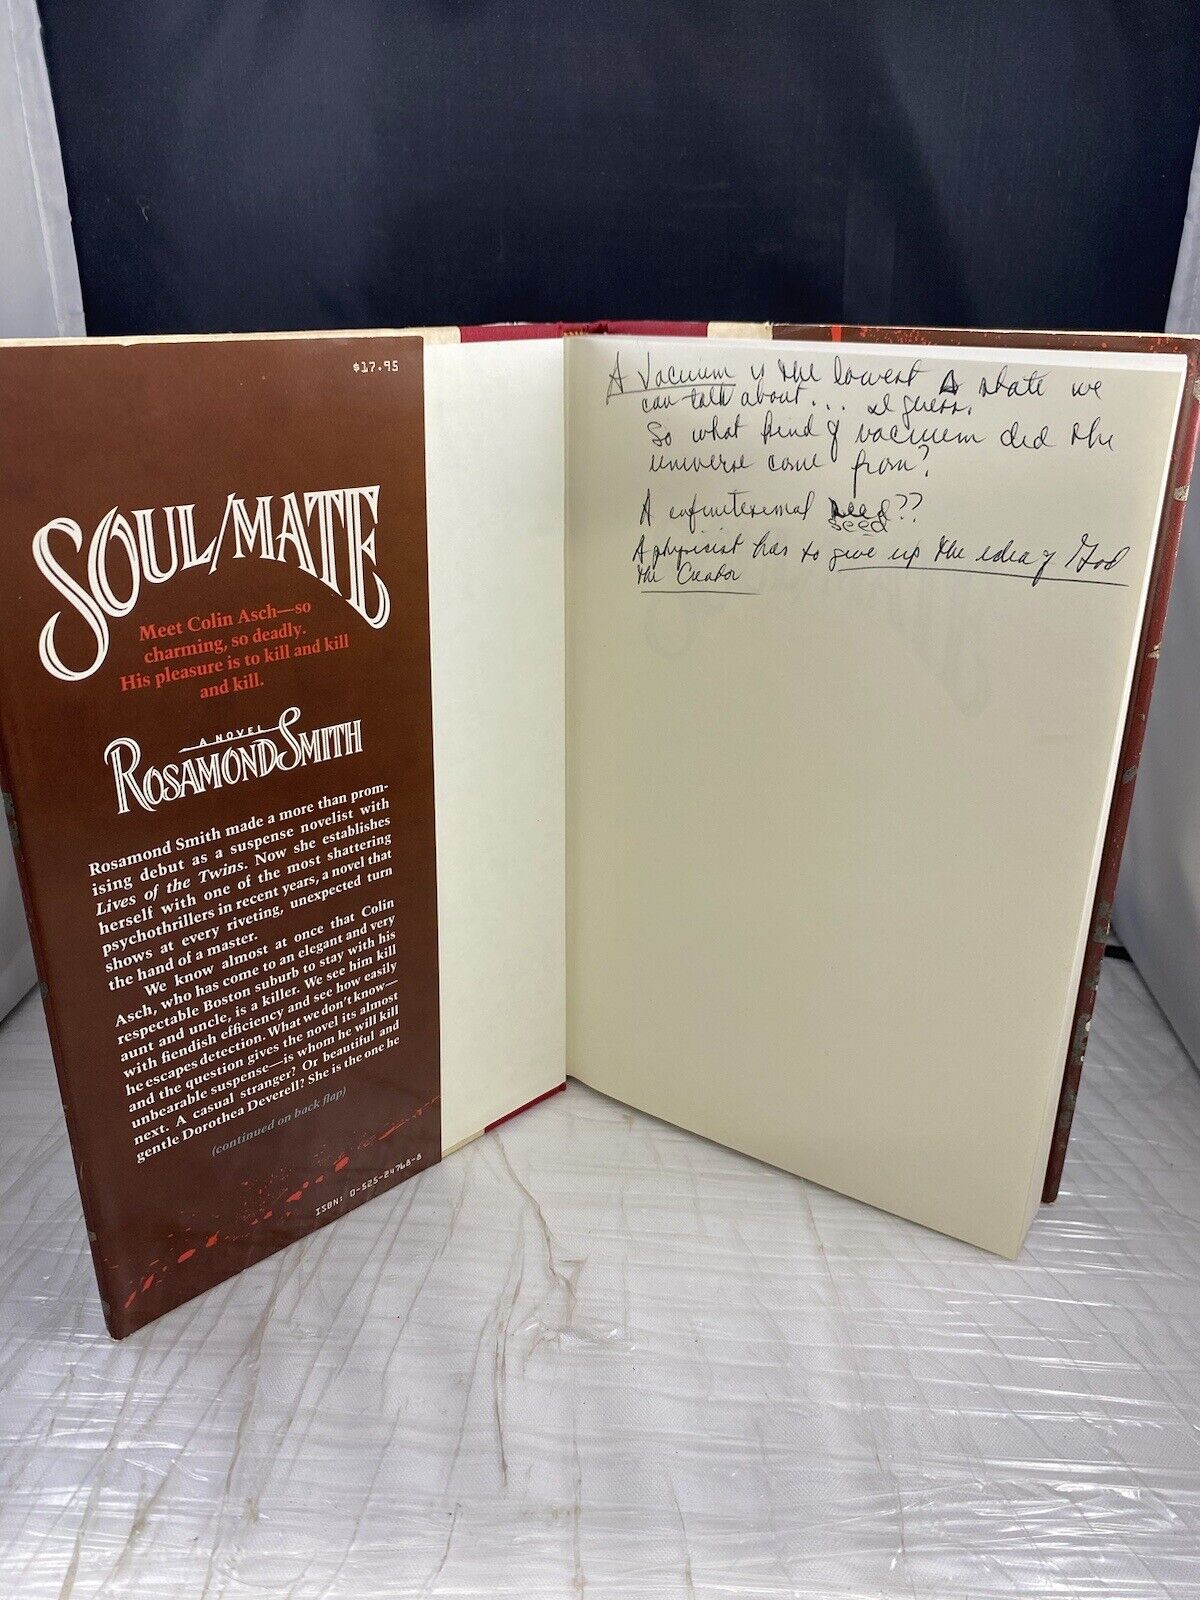 $17.95
SOUL/MATE
Meet Colin Asch—so
charming, so deadly.
His pleasure is to kill and kill
and kill.
A NOVEL
ROSAMOND SMITH
Rosamond Smith made a more than prom-
ising debut as a suspense novelist with
Lives of the Twins. Now she establishes
herself with one of the most shattering
psychothrillers in recent years, a novel that
shows at every riveting, unexpected turn
the hand of a master.
We know almost at once that Colin
Asch, who has come to an elegant and very
respectable Boston suburb to stay with his
aunt and uncle, is a killer. We see him kill
with fiendish efficiency and see how easily
he escapes detection. What we don't know—
and the question gives the novel its almost
unbearable suspense—is whom he will kill
next. A casual stranger? Or beautiful and
gentle Dorothea Deverell? She is the one he
(continued on back flap)
ISBN: 0-525-24768-8
A Vacuum is the lowest state we
can talk about... I guess.
So what kind of vacuum did the
universe come from?
A infinitesimal seed??
seed
A physicist has to give up the idea of God
the Creator